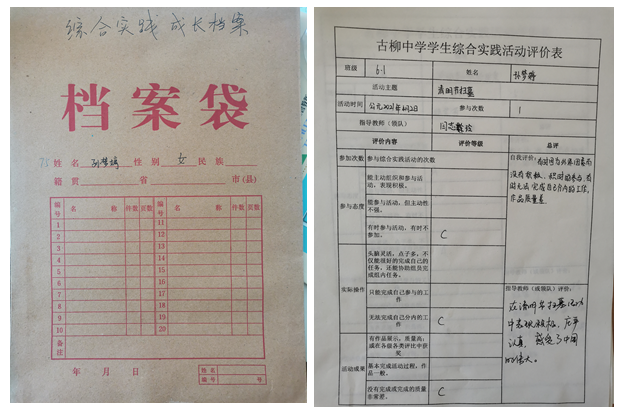 综合实践成长档案
档案袋
75 姓名 孙梦婷 性别 女 民族
籍贯 省 市(县)
编号 名称 件数 页数 编号 名称 件数 页数
1 11
2 12
3 13
4 14
5 15
6 16
7 17
8 18
9 19
10 20
备注
年 月 日
姓名
编号 号
古柳中学学生综合实践活动评价表
班级 6.1 姓名 孙梦婷
活动主题 清明节扫墓
活动时间 公元2021年4月2日 参与次数 1
指导教师(领队)
评价内容 评价等级 总评
参加次数 参与综合实践活动的次数
参与态度
能主动组织和参与活动,表现积极。
能参与活动,但主动性不强。
有时参与活动,有时不参加。 C
实际操作
头脑灵活,点子多,不仅能很好的完成自己的任务,还能协助组员完成组内任务。
只能完成自己参与的工作
无法完成自己分内的工作 C
活动成果
有作品展示,质量高;或在各级各类评比中获奖
基本完成活动过程,作品一般。
没有完成或完成的质量非常差。 C
自我评价:有时因为
没有积极、积时的参与,有
时无法完成自己分内的工作,
作品质量差
指导教师(或领队)评价:
在清明节扫墓活动
中表现积极、庄严
认真,感受了中国
的伟大。